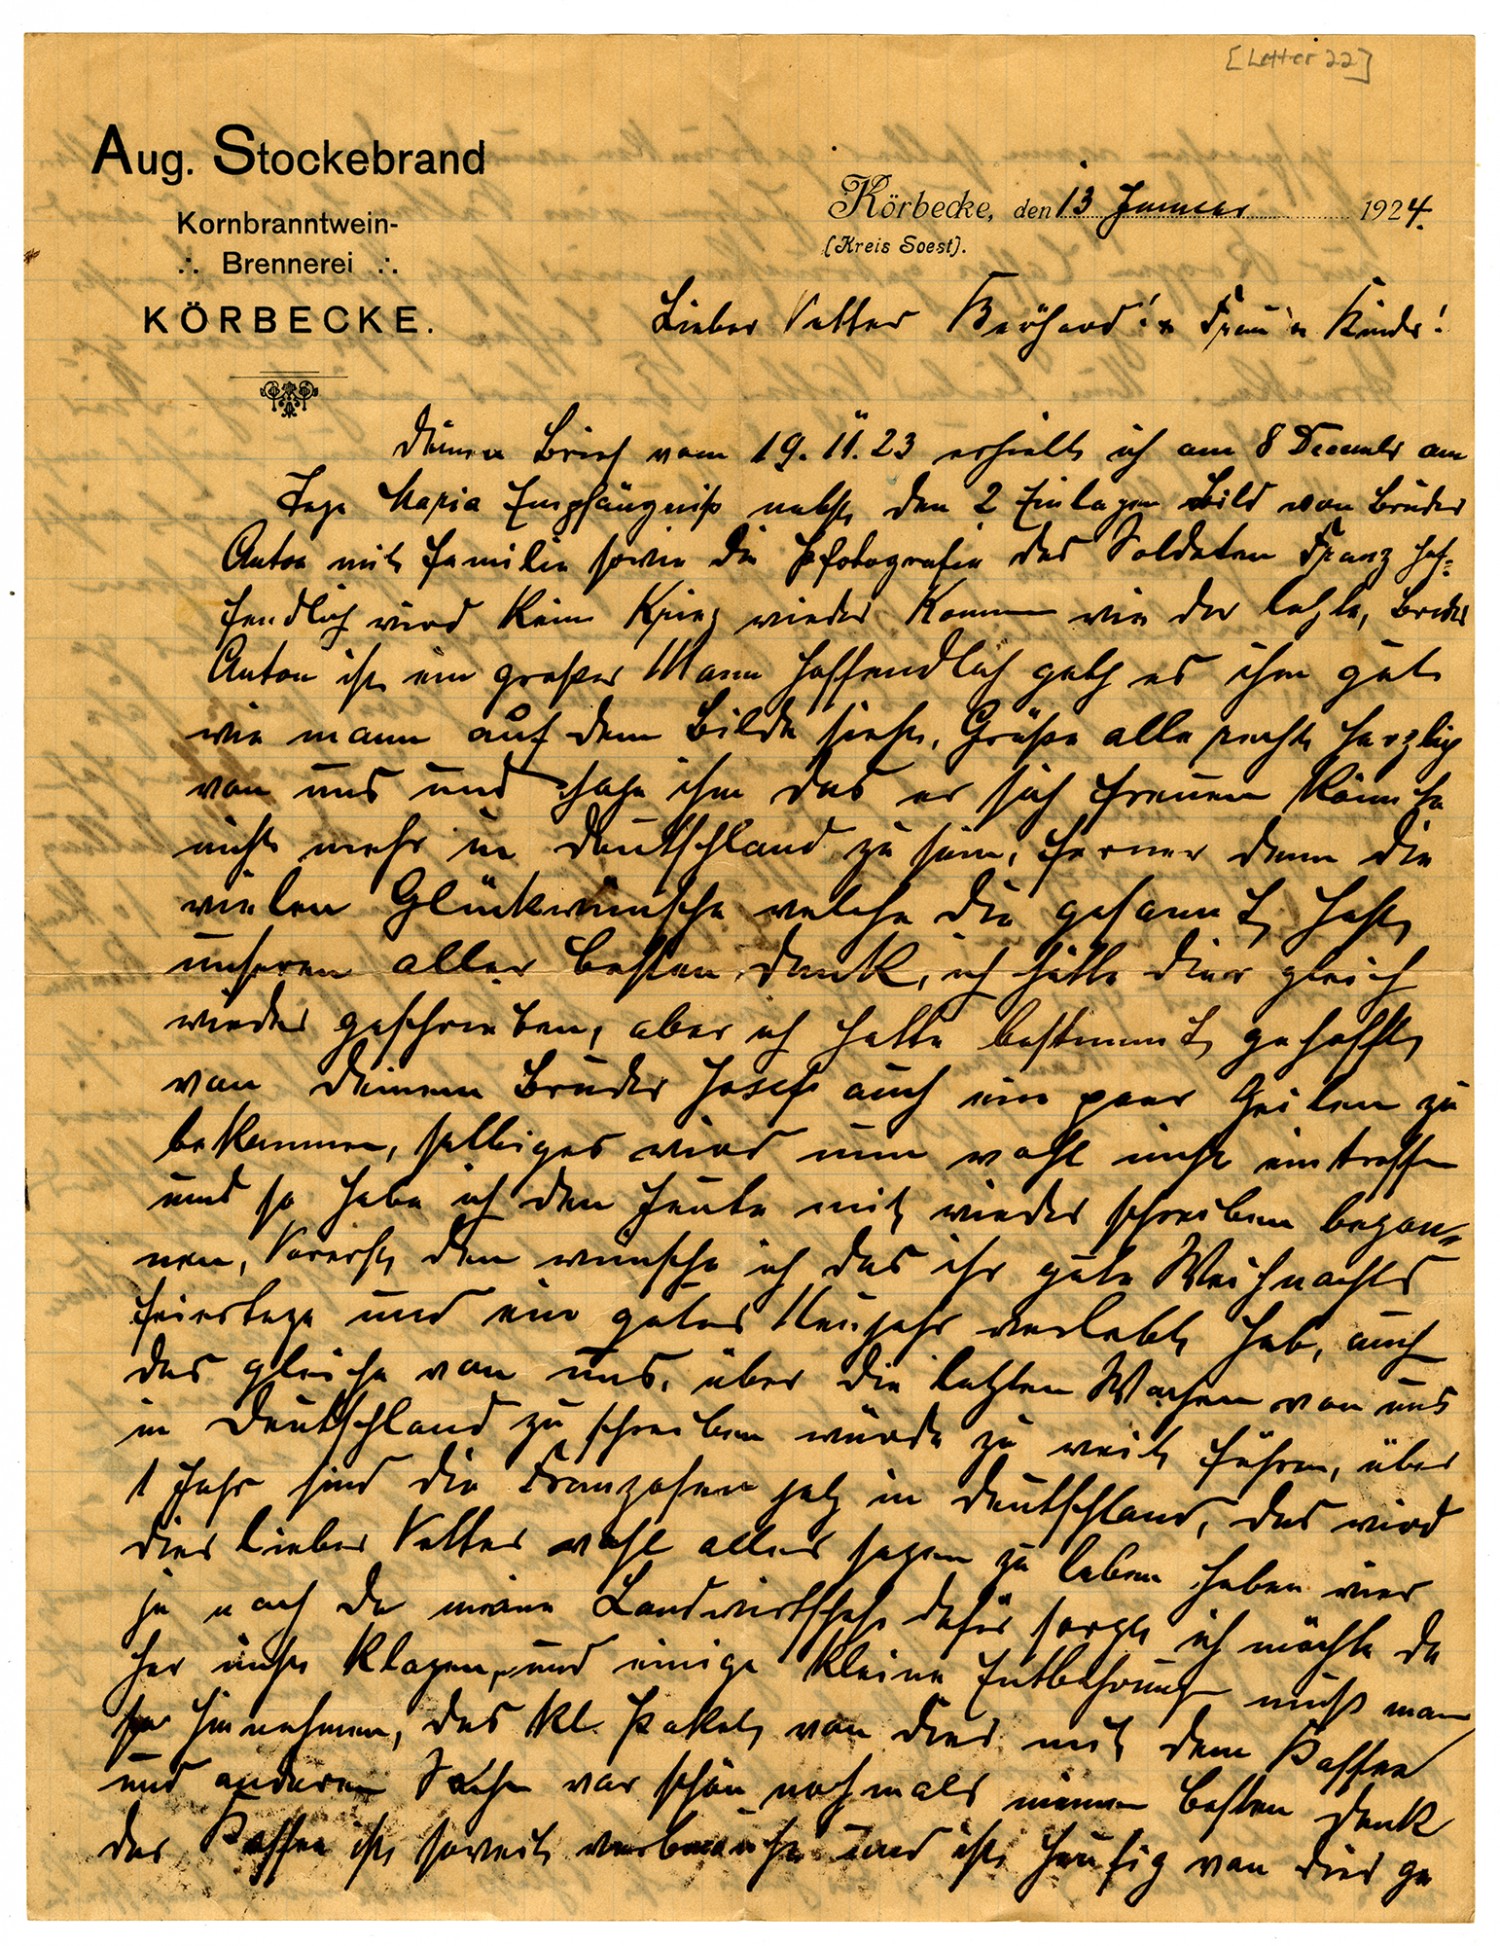 [Letter 22]
Aug. Stockebrand
Kornbranntwein-
∴ Brennerei ∴
KÖRBECKE.
Körbecke, den 13 Januar 1924.
(Kreis Soest).
Lieber Vetter Bernhard! u Frau u Kinder!
Deinen Brief vom 19.11.23 erhielt ich am 8 Decemb am
Tage Maria Empfängniß nebst den 2 Einlagen Bild von Bruder
Anton mit Familie sowie die Pfotografie des Soldaten Franz hof-
fendlich wird kein Krieg wieder kommen wie der letzte, Bruder
Anton ist ein großer Mann hoffendlich geth es ihm gut
wie mann auf dem Bilde sieht, Grüße alle recht herzlich
von uns und sage ihm das er sich freuen könnte
nicht mehr in Deutschland zu sein, ferner denn die
vielen Glückwünsche welche du gesannt hast
unseren aller besten Dank, ich hätte dier gleich
wieder geschrieben, aber ich hatte bestimmt gehofft
von Deinem Bruder Josef auch ein paar Zeilen zu
bekommen, selbiges wird nun wohl nicht eintreffen
und so habe ich den heute mit wieder schreiben begon-
nen, Vorerst den wünsche ich das ihr gute Weihnachts
feiertage und ein gutes Neujahr verlebt hab, auch
das gleiche von uns, über die letzten Wochen von uns
in Deutschland zu schreiben würde zu weit führen, über
1 Jahr sind die Franzosen jetz in Deutschland, das wird
dier lieber Vetter wohl alles sagen zu leben haben wier
ja noch da meine Landwirtschaft dafür sorgt ich möchte da
her nicht klagen, und einige kleine Entbehrung muß man
hinnehmen, das kl. Paket von dier mit dem Kaffee
und anderen Sachen war schön nochmals meinen besten Dank
der Kaffee ist soweit verbraucht und ist häufig von dier ge